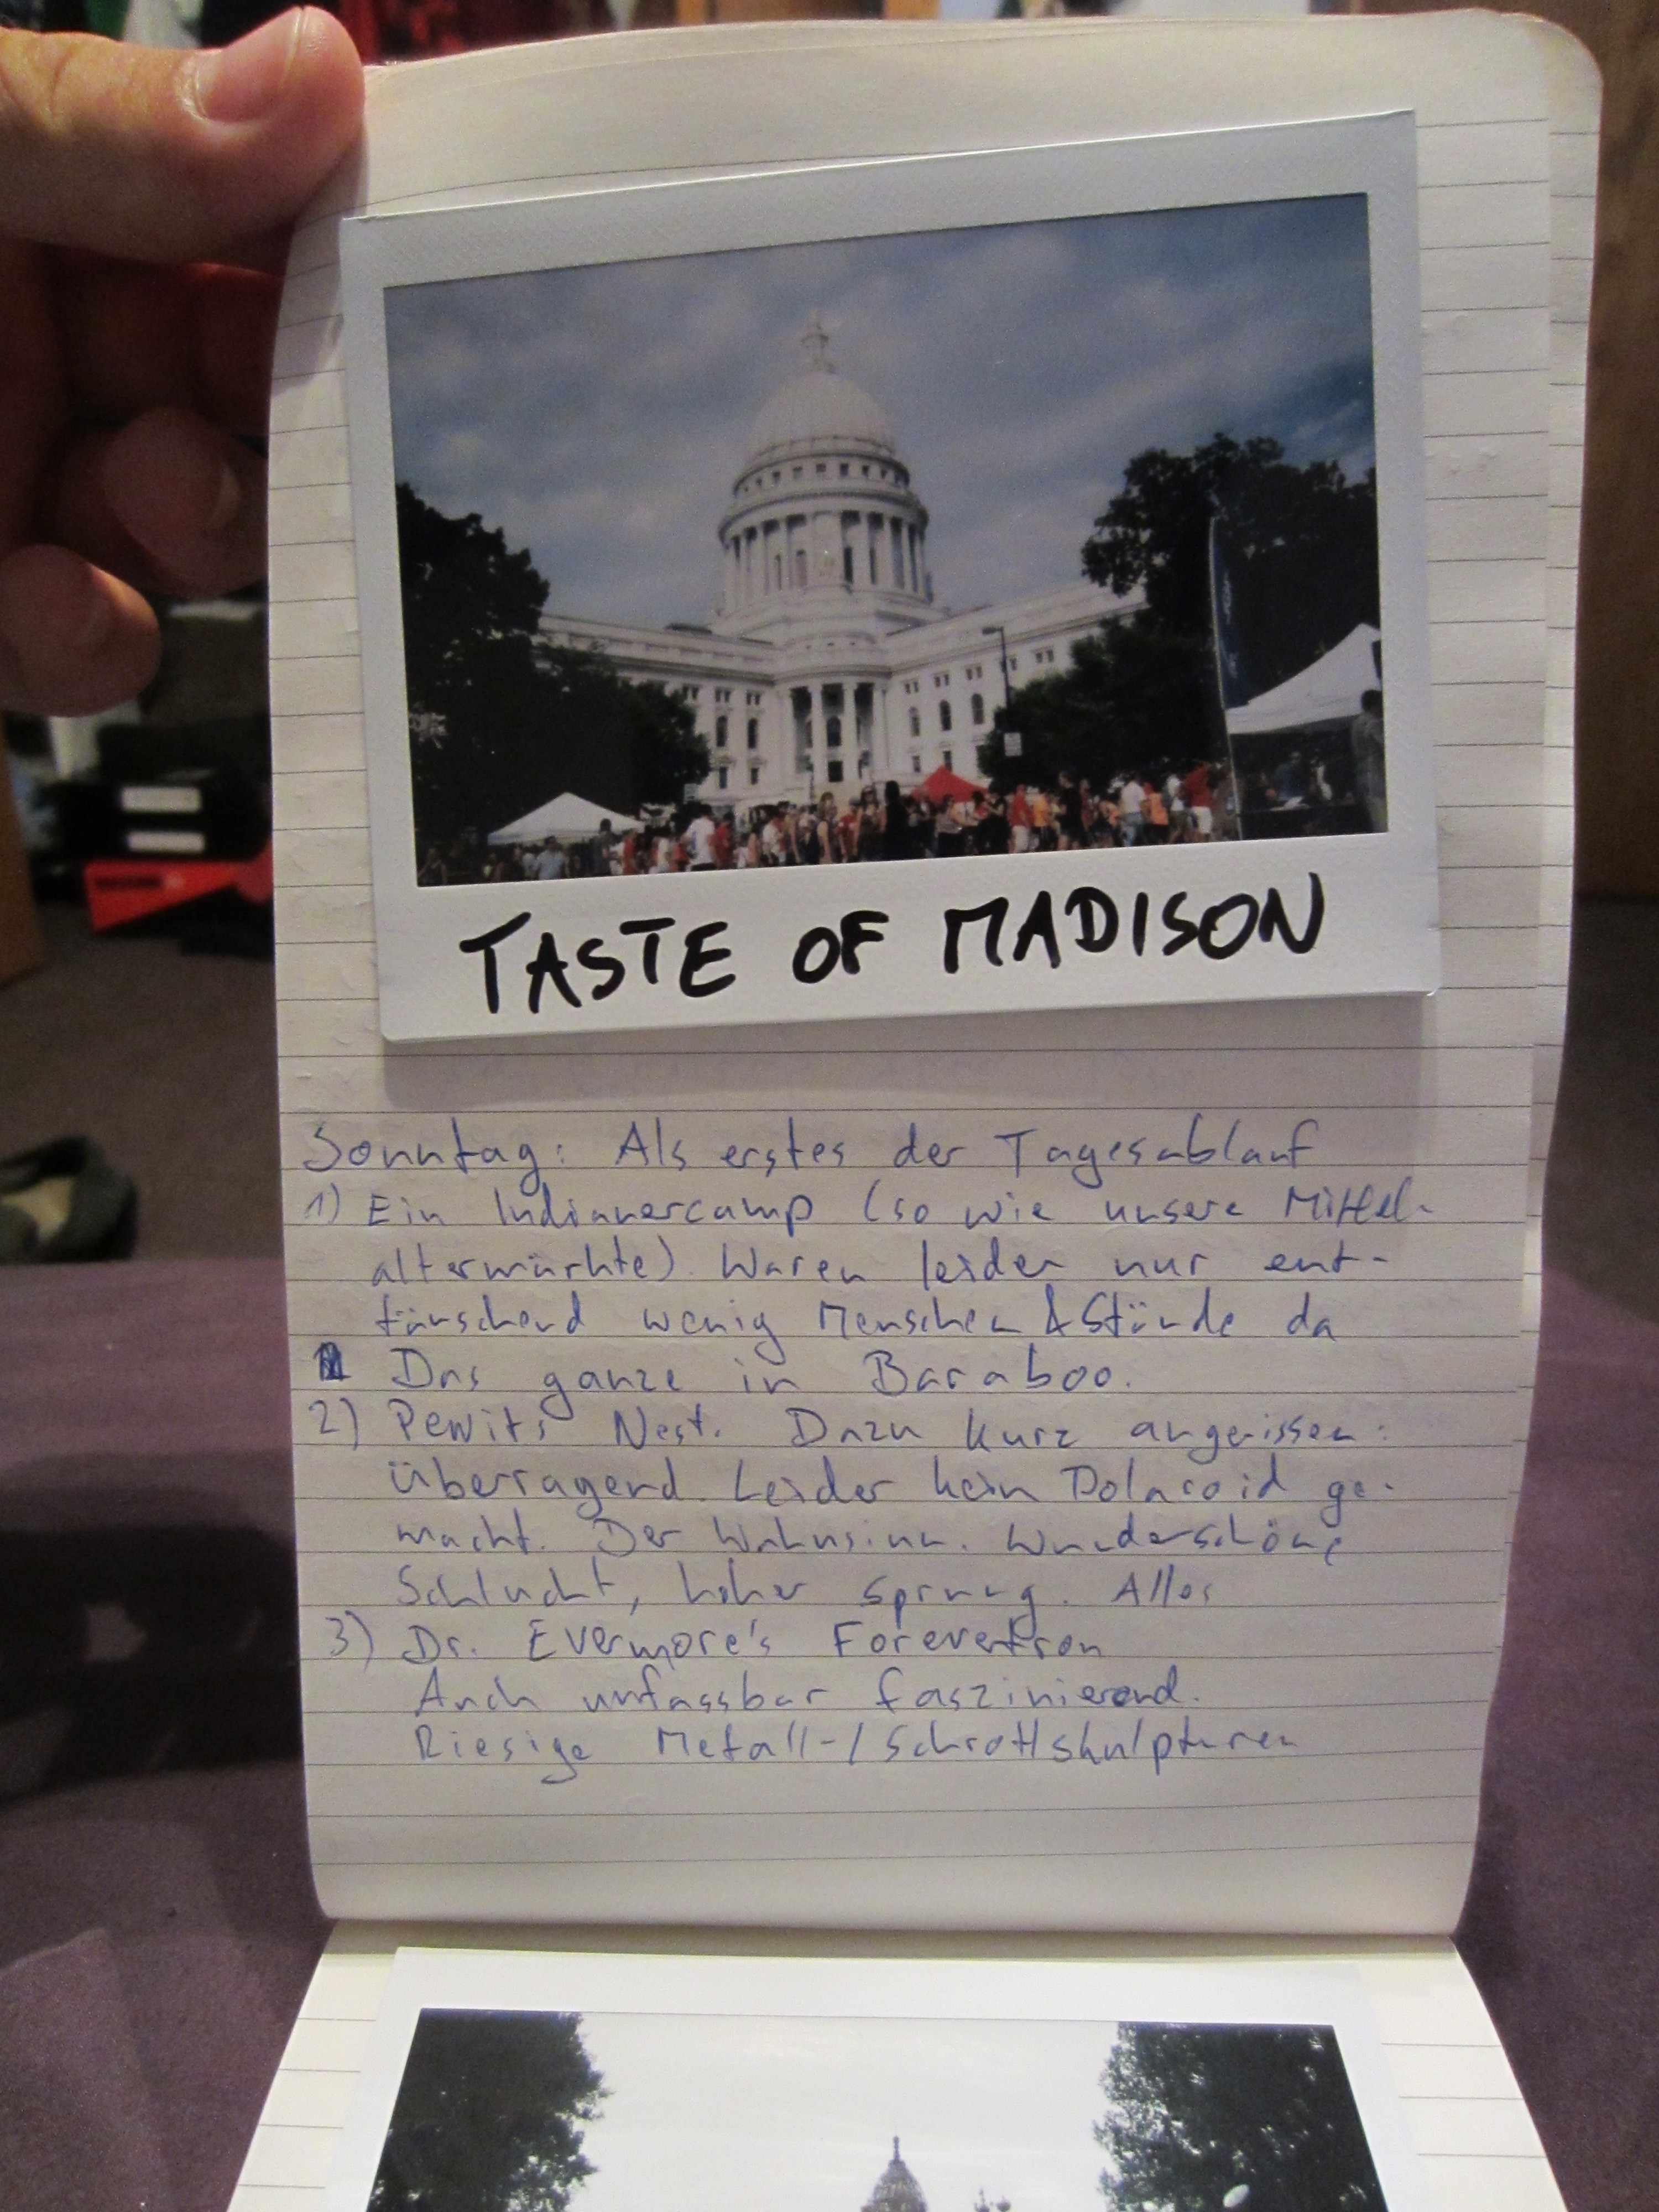 TASTE OF MADISON
Sonntag: Als erstes der Tagesablauf
1) Ein Indianercamp (so wie unsere Mittel-
altermärkte). Waren leider nur ent-
täuschend wenig Menschen & Stände da
Das ganze in Baraboo.
2) Pewits Nest. Dazu kurz angerissen:
Überragend. Leider kein Polaroid ge-
macht. Der Wahnsinn. Wunderschöne
Schlucht, hoher Sprung. Alles
3) Dr. Evermore's Forevertron
Auch unfassbar faszinierend.
Riesige Metall-/Schrottskulpturen